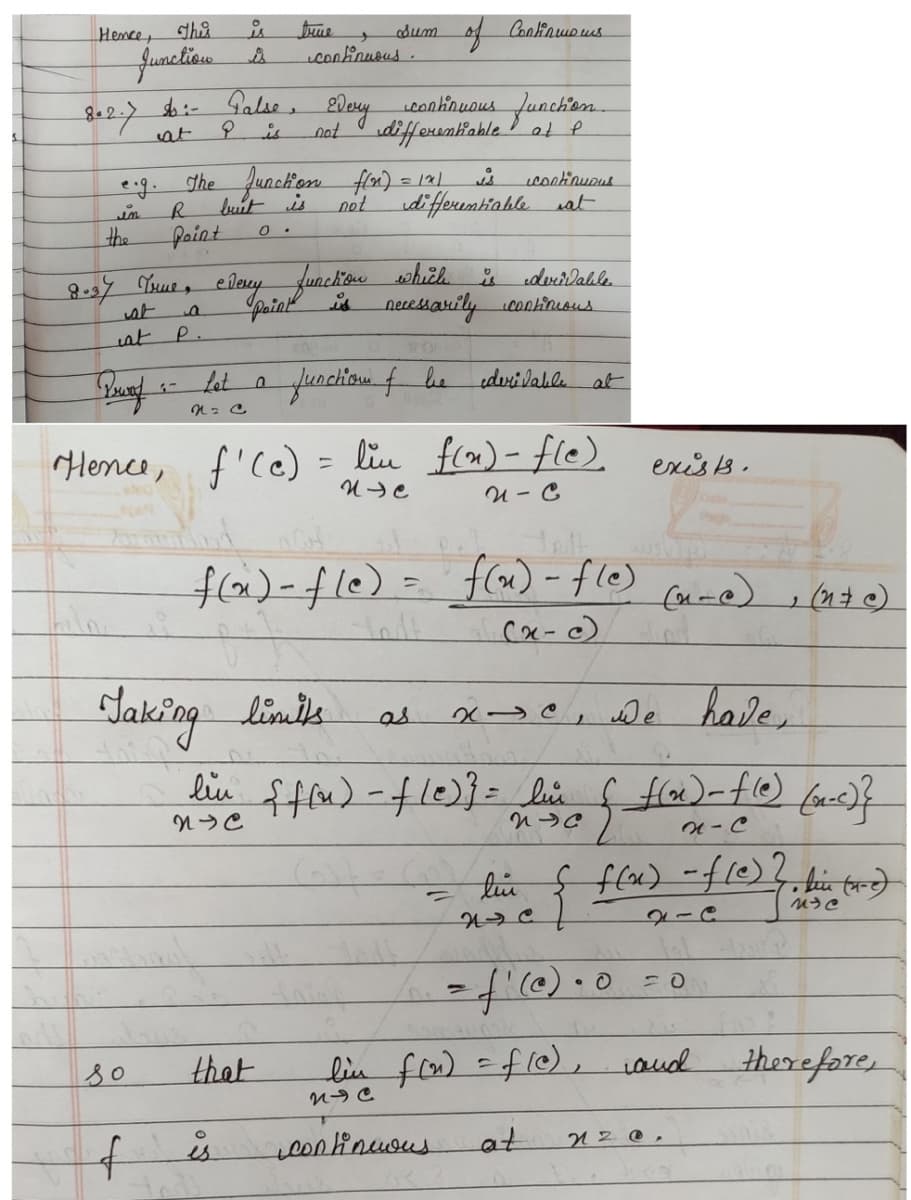 Hence, This is true, sum of Continuous
function is continuous.
8.2.> so:- False, Every continuous function
at P is not differentiable at P
e.g. The function f(x) = |x| is continuous
in R but is not differentiable at
the point 0.
8.3> True, every function which is derivable
at a point is necessarily continous
at P.
Proof :- Let a function f be derivable at
x = c
Hence, f'(c) = lim x→c f(x) - f(c) / x - c exists.
f(x) - f(c) = f(x) - f(c) / (x - c) (x - c), (x ≠ c)
Taking limits as x → c, we have,
lim x→c {f(x) - f(c)} = lim x→c { f(x) - f(c) / x - c (x-c)}
= lim x→c { f(x) - f(c) / x - c } . lim x→c (x-c)
= f'(c) . 0 = 0
so that lim x→c f(x) = f(c), and therefore,
f is continuous at x = c.